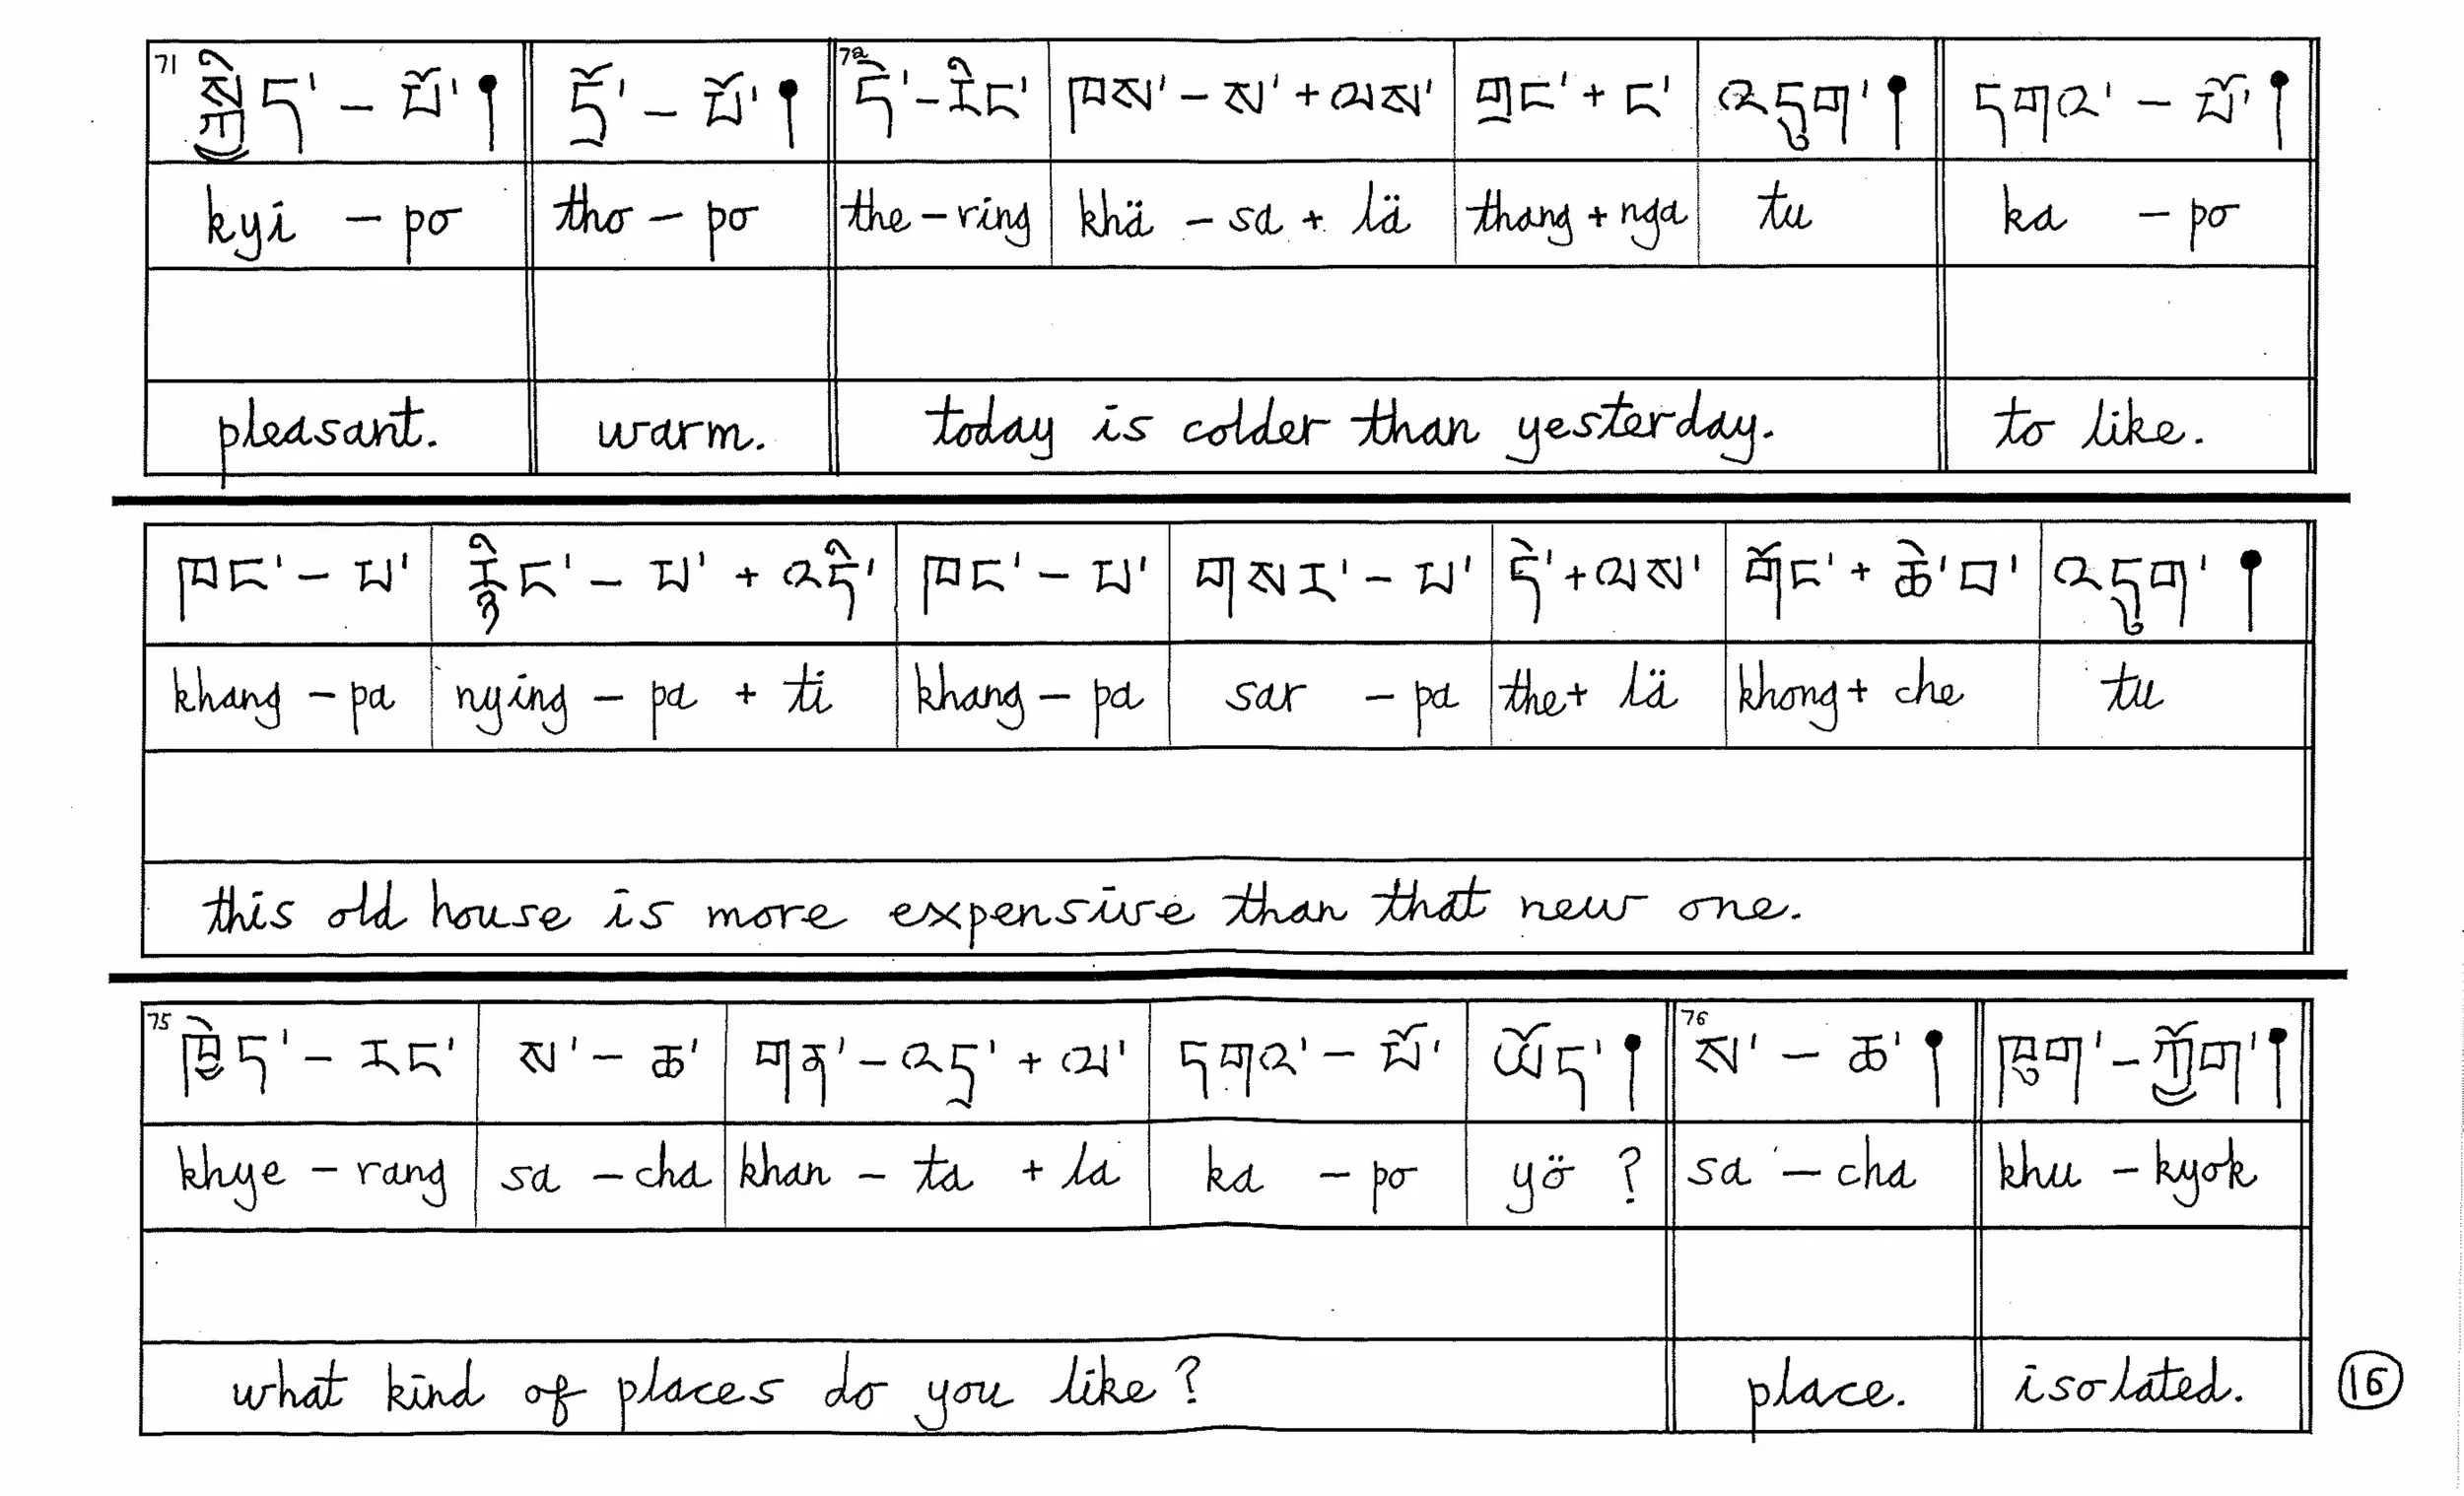 71 སྐྱིད་ – པོ་། དྲོ་ – པོ་། 72 དེ་ – རིང་ ཁས་ – ས་ + ལས་ གྲང་ + ང་ འདུག་། དགའ་ – པོ་།
kyi – po tho – po the – ring khä – sa + lä thang + nga tu ka – po
pleasant. warm. today is colder than yesterday. to like.
ཁང་ – པ་ རྙིང་ – པ་ + འདི་ ཁང་ – པ་ གསར་ – པ་ དེ་ + ལས་ གོང་ + ཆེ་བ་ འདུག་།
khang – pa nying – pa + ti khang – pa sar – pa the + lä khong + che tu
this old house is more expensive than that new one.
75 ཁྱེད་ – རང་ ས་ – ཆ་ གན་ – འདྲ་ + ལ་ དགའ་ – པོ་ ཡོད་། 76 ས་ – ཆ་། ཁུག་ – ཀྱོག་།
khye – rang sa – cha khan – ta + la ka – po yö ? sa – cha khu – kyok
what kind of places do you like? place. isolated.
16